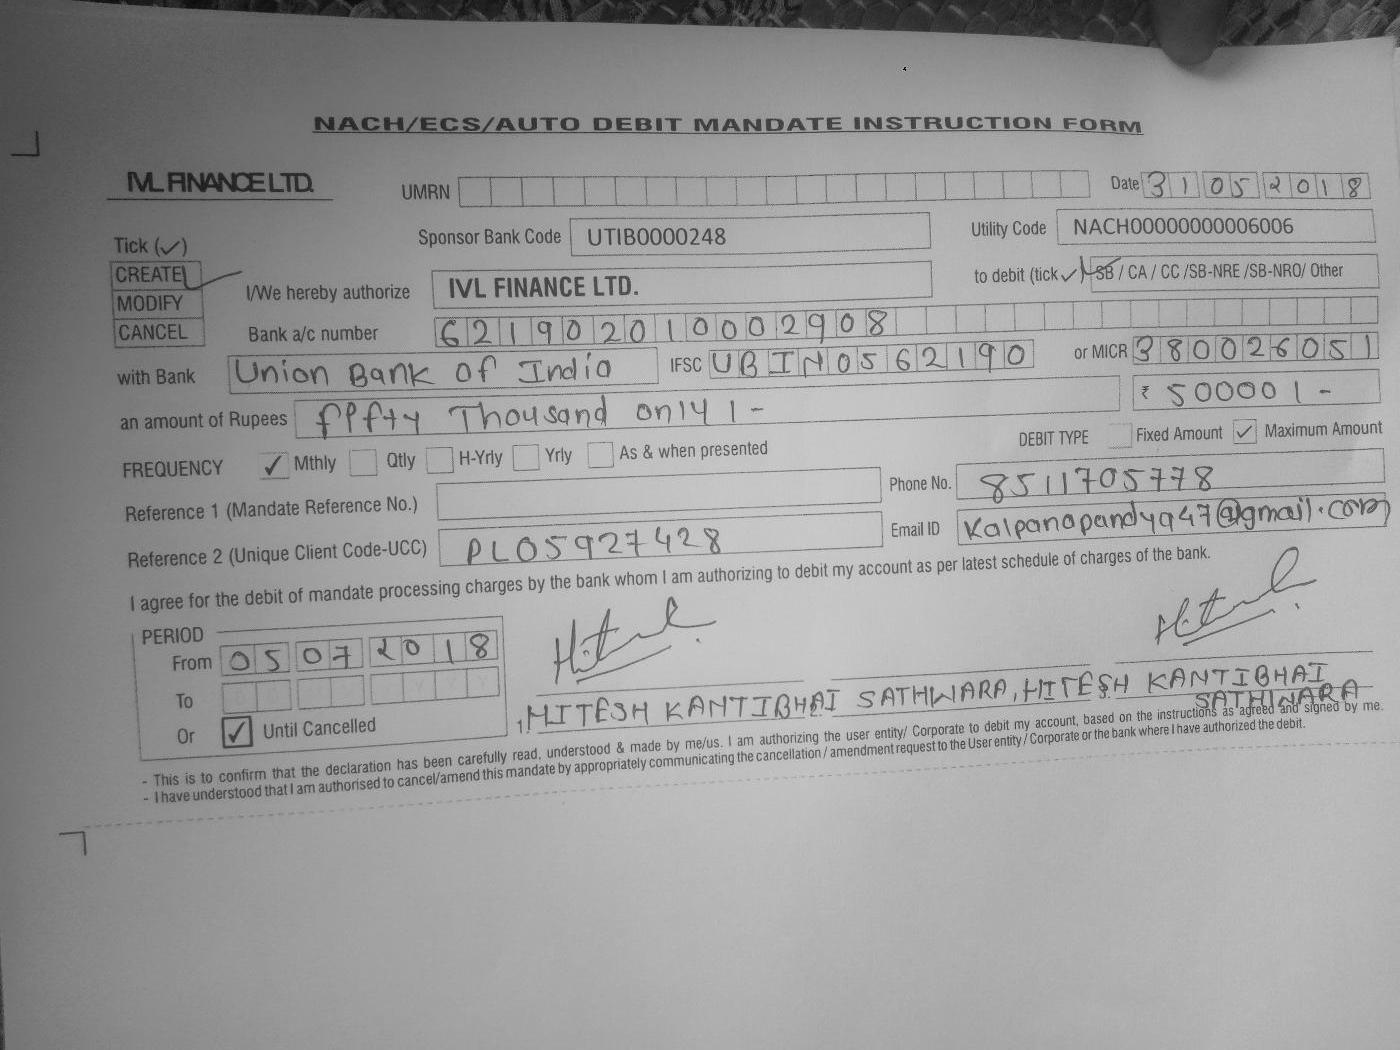 NACH/ECS/AUTO DEBIT MANDATE INSTRUCTION FORM
IVL FINANCE LTD.
UMRN
Date 31052018
Tick (✓)
Sponsor Bank Code UTIB0000248
Utility Code NACH00000000006006
CREATE ✓
MODIFY
CANCEL
I/We hereby authorize IVL FINANCE LTD.
to debit (tick ✓) SB / CA / CC /SB-NRE /SB-NRO/ Other
Bank a/c number 621902010002908
with Bank Union Bank of India IFSC UBIN0562190 or MICR 380026051
an amount of Rupees fifty Thousand only /- ₹ 50000/-
FREQUENCY ✓ Mthly Qtly H-Yrly Yrly As & when presented
DEBIT TYPE Fixed Amount ✓ Maximum Amount
Reference 1 (Mandate Reference No.)
Phone No. 8511705778
Reference 2 (Unique Client Code-UCC) PL05927428
Email ID Kalpanapandya47@gmail.com
I agree for the debit of mandate processing charges by the bank whom I am authorizing to debit my account as per latest schedule of charges of the bank.
PERIOD
From 05072018
To
Or ✓ Until Cancelled
Hitesh
Hitesh
1. HITESH KANTIBHAI SATHWARA, HITESH KANTIBHAI
SATHWARA
- This is to confirm that the declaration has been carefully read, understood & made by me/us. I am authorizing the user entity/ Corporate to debit my account, based on the instructions as agreed and signed by me.
- I have understood that I am authorised to cancel/amend this mandate by appropriately communicating the cancellation / amendment request to the User entity / Corporate or the bank where I have authorized the debit.